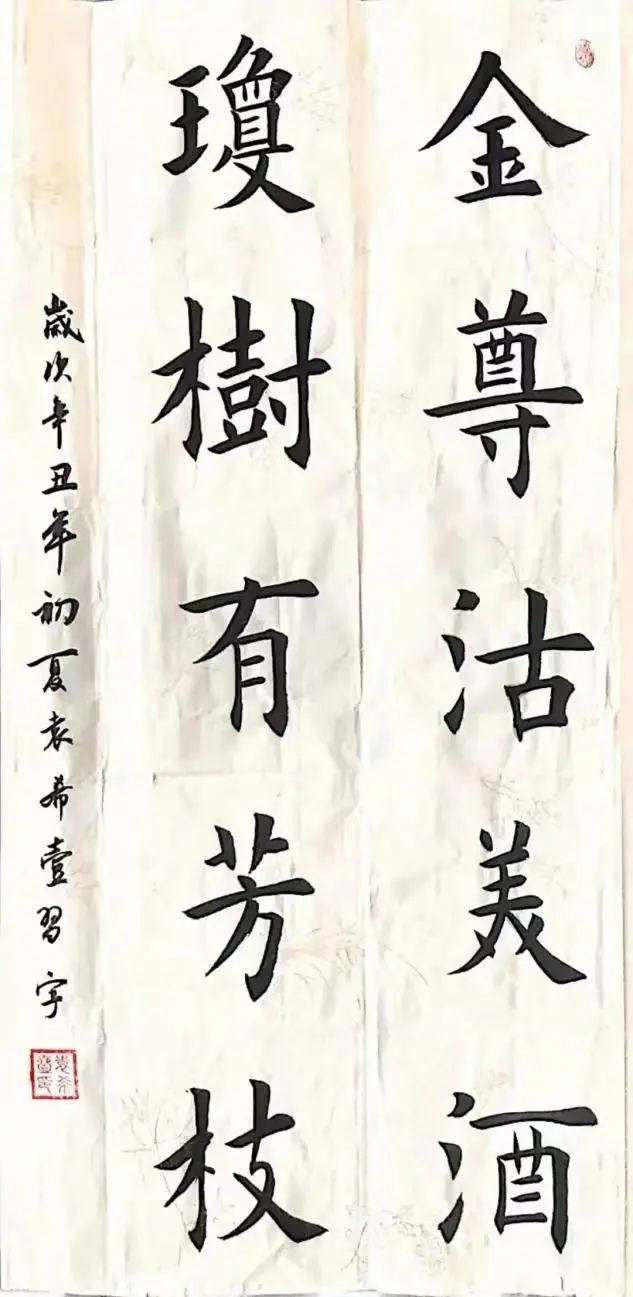 金尊沽美酒
瓊樹有芳枝
歲次辛丑年初夏袁希壹習字